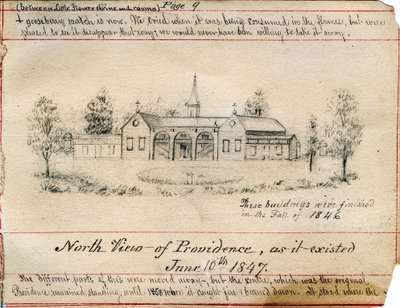 (between Little Flower shrine and ravine) Page 9
gooseberry patch is now. We cried when it was being consumed in the flames, but were
pleased to see it disappear that way; we would never have been willing to take it away.
These buildings were finished
in the Fall of 1846
North View of Providence, as it existed
June 10th 1847.
The different parts of this were moved away, but the centre, which was the original
Providence remained standing, until 1858 when it caught fire & burned down. It stood where the